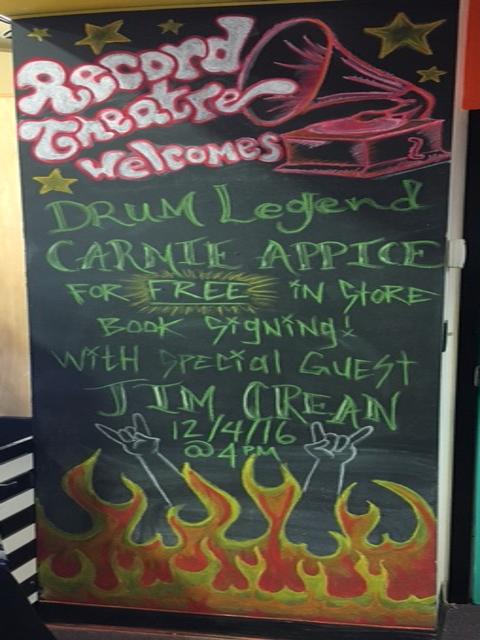 Record
Theatre
Welcomes
Drum Legend
CARMIE APPICE
FOR FREE IN STORE
BOOK Signing!
WITH Special GUEST
JIM CREAN
12/4/16
@ 4 PM